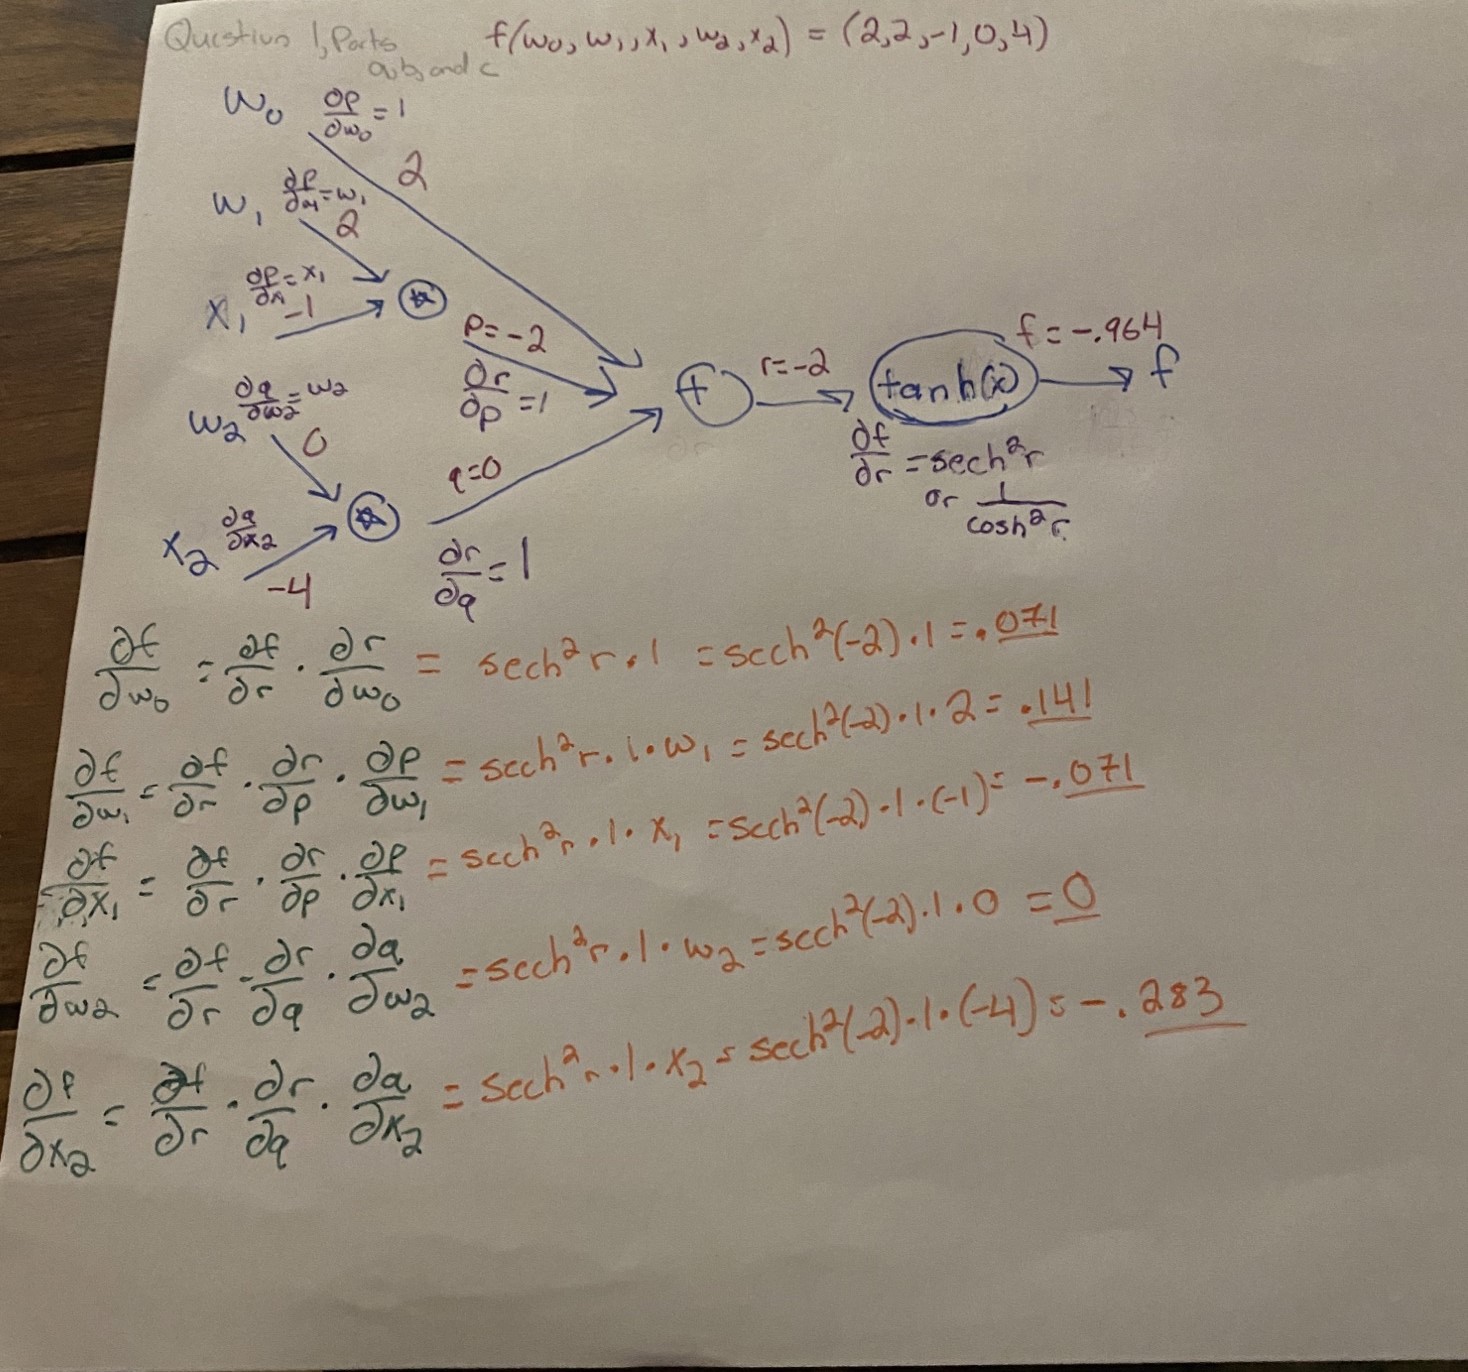 Question 1, Parts a, b, and c
f(w₀, w₁, x₁, w₂, x₂) = (2, 2, -1, 0, 4)
w₀ ∂p/∂w₀ = 1
2
w₁ ∂p/∂x₁ = w₁
2
x₁ ∂p/∂x = x₁
-1
*
p = -2
∂r/∂p = 1
w₂ ∂q/∂w₂ = w₂
0
x₂ ∂q/∂x₂
-4
*
q = 0
∂r/∂q = 1
+
r = -2
tanh(x)
f = -.964
f
∂f/∂r = sech²r
or 1/cosh²r
∂f/∂w₀ = ∂f/∂r · ∂r/∂w₀ = sech²r · 1 = sech²(-2) · 1 = .071
∂f/∂w₁ = ∂f/∂r · ∂r/∂p · ∂p/∂w₁ = sech²r · 1 · w₁ = sech²(-2) · 1 · 2 = .141
∂f/∂x₁ = ∂f/∂r · ∂r/∂p · ∂p/∂x₁ = sech²r · 1 · x₁ = sech²(-2) · 1 · (-1) = -.071
∂f/∂w₂ = ∂f/∂r · ∂r/∂q · ∂q/∂w₂ = sech²r · 1 · w₂ = sech²(-2) · 1 · 0 = 0
∂f/∂x₂ = ∂f/∂r · ∂r/∂q · ∂q/∂x₂ = sech²r · 1 · x₂ = sech²(-2) · 1 · (-4) = -.283